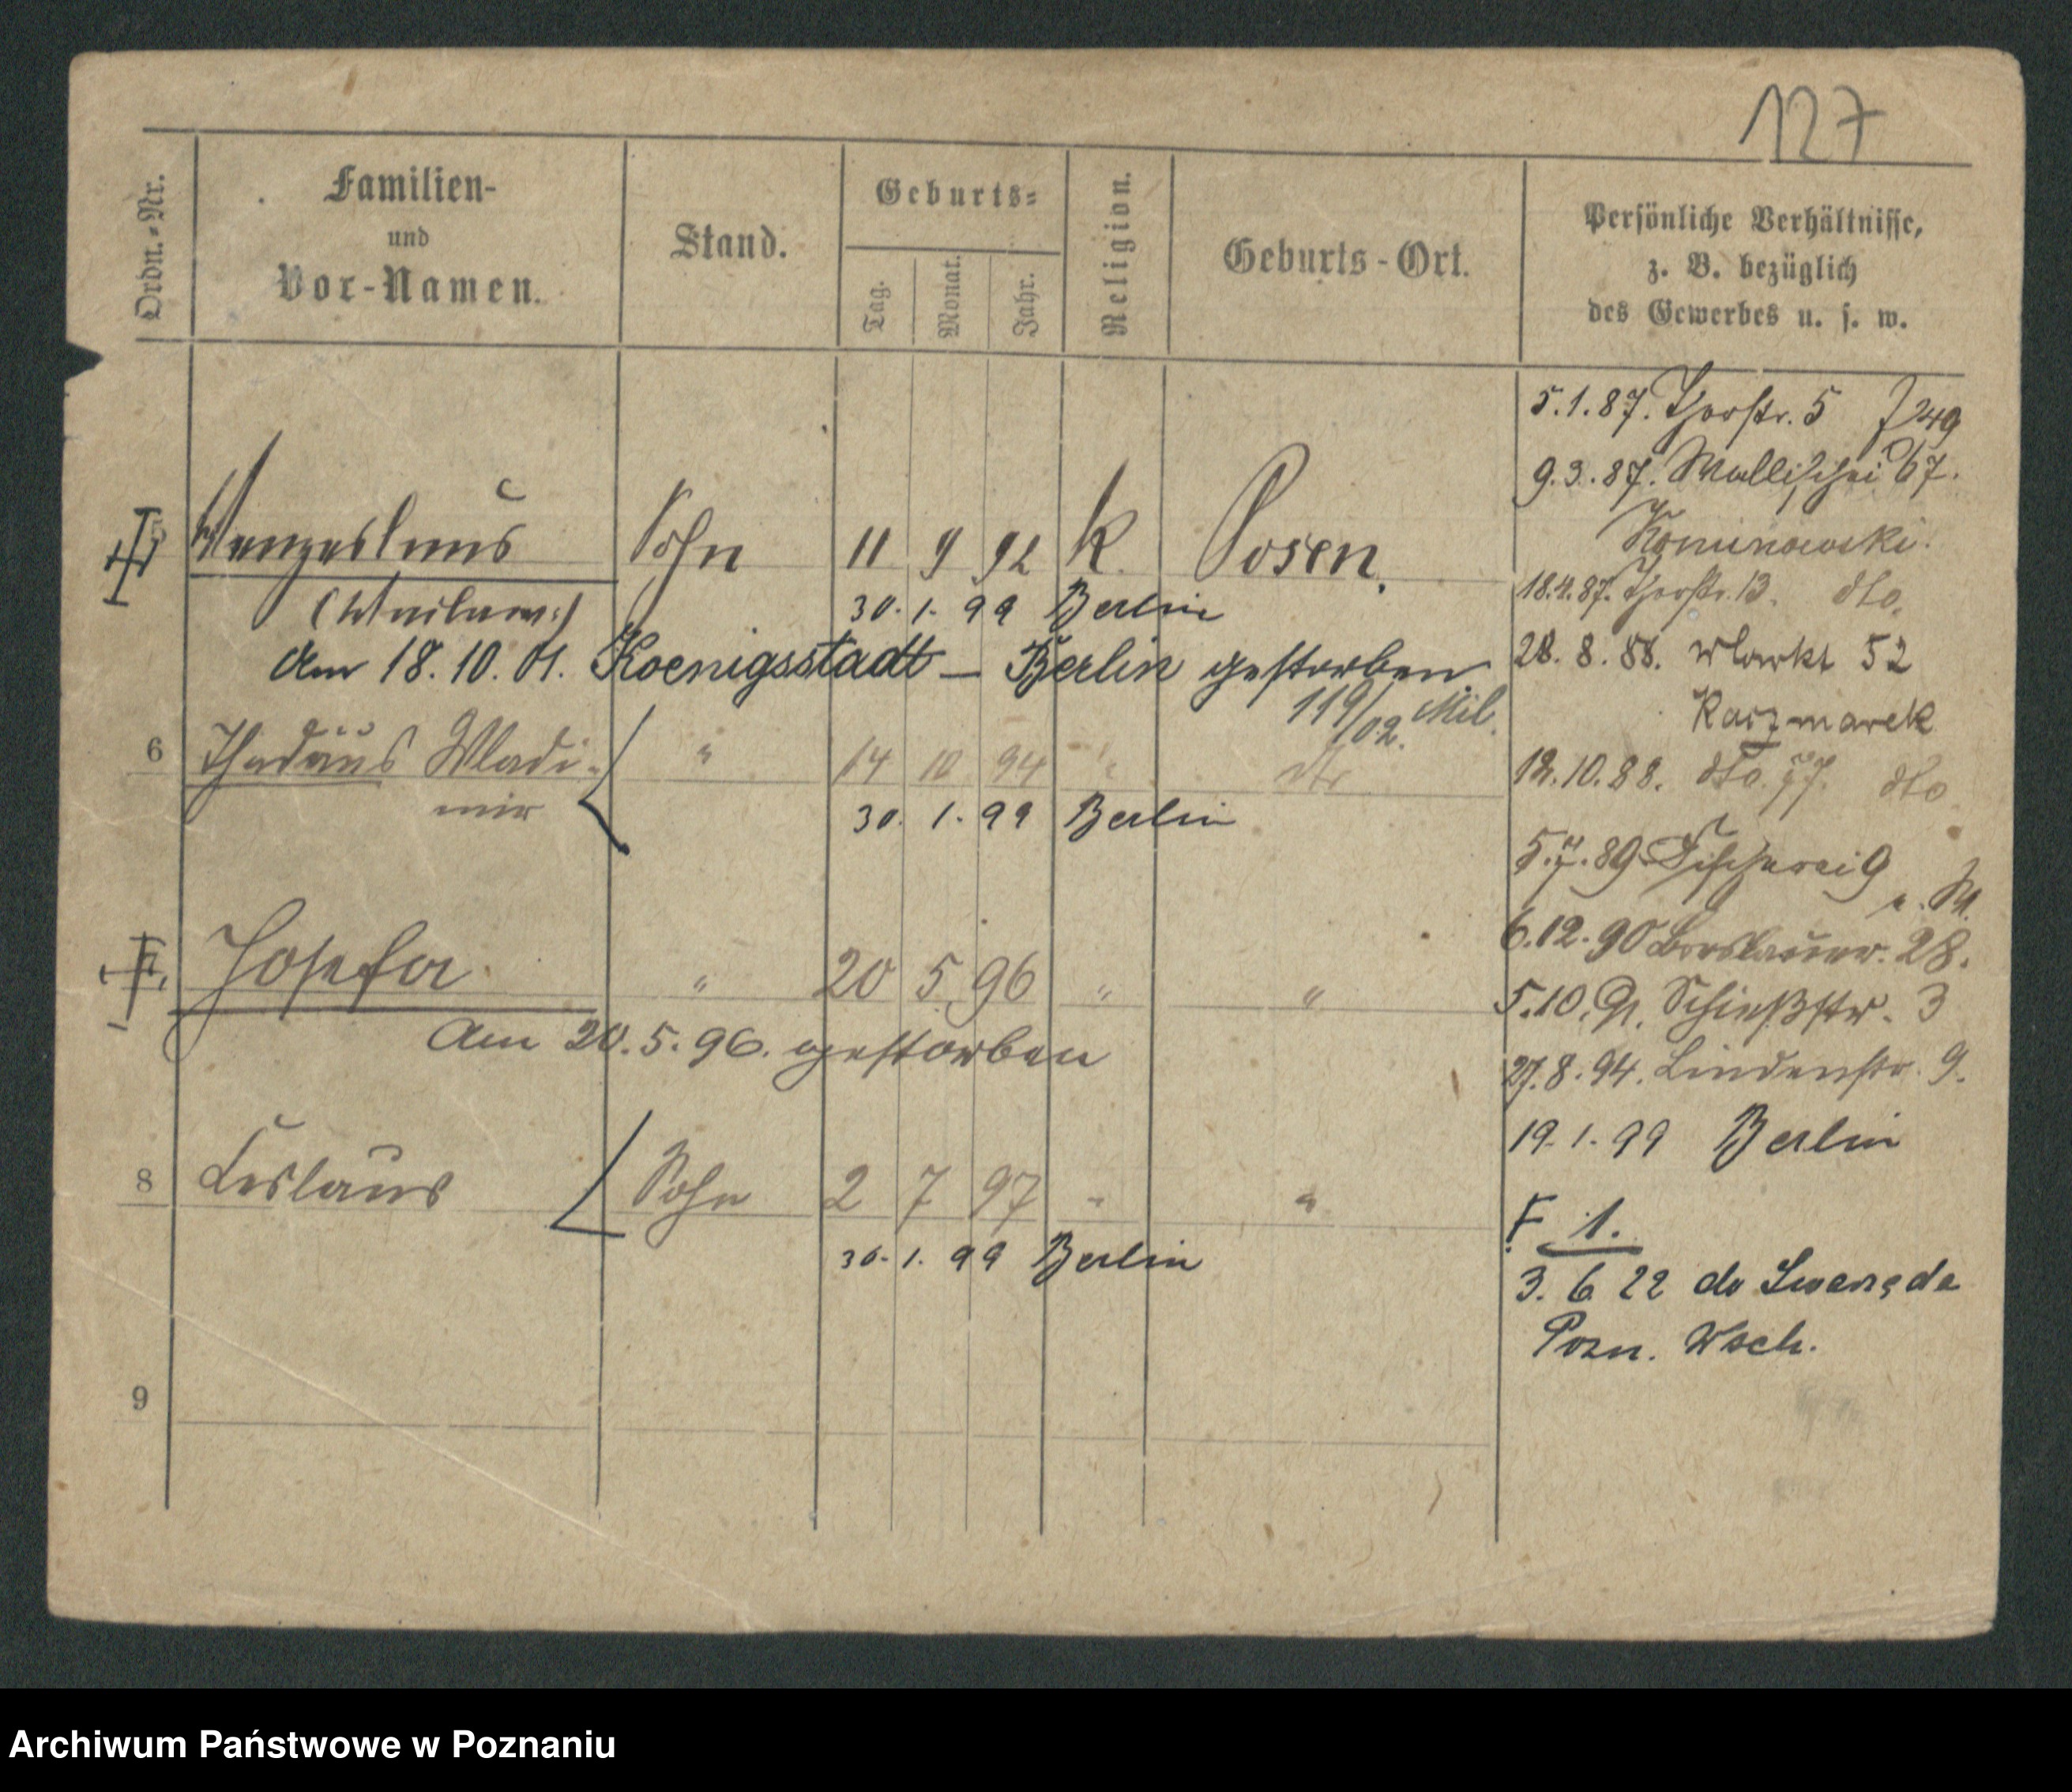 127
Ordn.-Nr.
Familien-
und
Vor-Namen.
Stand.
Geburts-
Tag.
Monat.
Jahr.
Religion.
Geburts-Ort.
Persönliche Verhältnisse,
z. B. bezüglich
des Gewerbes u. s. w.
5 Wenzeslaus Sohn 11 9 92 K. Posen.
30. 1. 99 Berlin
Am 18. 10. 01. Koenigsstadt - Berlin gestorben
119/02. Mil.
6 Thadäus Wladi- " 14 10 94 " dto
mir
30. 1. 99 Berlin
7 Josefa " 20 5 96 " "
Am 20. 5. 96. gestorben
8 Ceslaus Sohn 2 7 97 " "
30. 1. 99 Berlin
9
5. 1. 87. Thorstr. 5 J 249
9. 3. 87. Wallischei 67.
Kominowski.
18. 4. 87. Thorstr. 13. dto.
28. 8. 88. Markt 52
Kaczmarek
12. 10. 88. dto. 77. dto
5. 7. 89 Fischerei 9
6. 12. 90 Breslauer. 28.
5. 10. 91. Schießstr. 3
27. 8. 94. Lindenstr. 9.
19. 1. 99 Berlin
F 1.
3. 6 22 do Swarzędz
Pozn. Wsch.
Archiwum Państwowe w Poznaniu